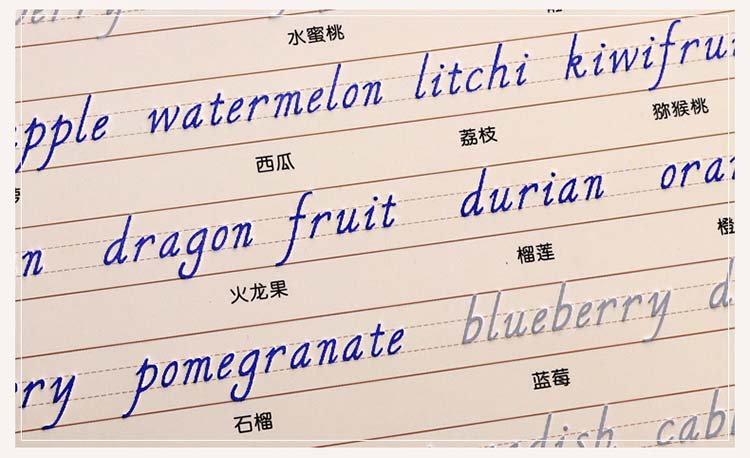 水蜜桃
pple watermelon litchi kiwifrui
西瓜 荔枝 猕猴桃
n dragon fruit durian oran
火龙果 榴莲 橙
rry pomegranate blueberry d
石榴 蓝莓
adish cab